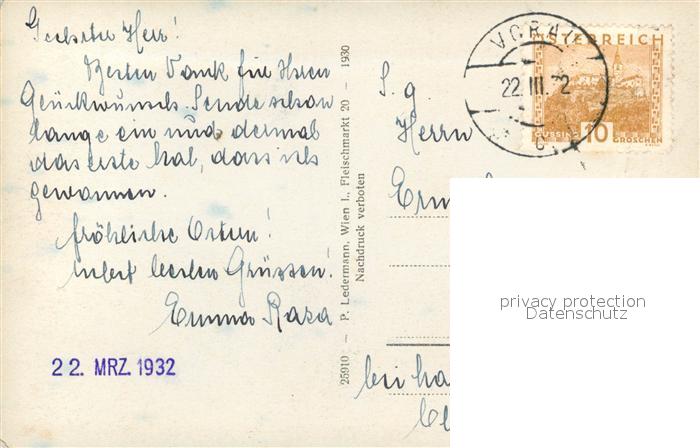 Geehrter Herr!
Besten Dank für Ihren
Glückwunsch. Sende schon
lange ein und dermal
das erste Mal, dass ich
gewonnen.
fröhliche Ostern!
nebst besten Grüssen!
Emma Rasa
22. MRZ. 1932
25910 — P. Ledermann, Wien I., Fleischmarkt 20 — 1930
Nachdruck verboten
VORAU
22. III. 32
ÖSTERREICH
GÜSSING 10 GROSCHEN
S. g.
Herrn
privacy protection
Datenschutz
bei